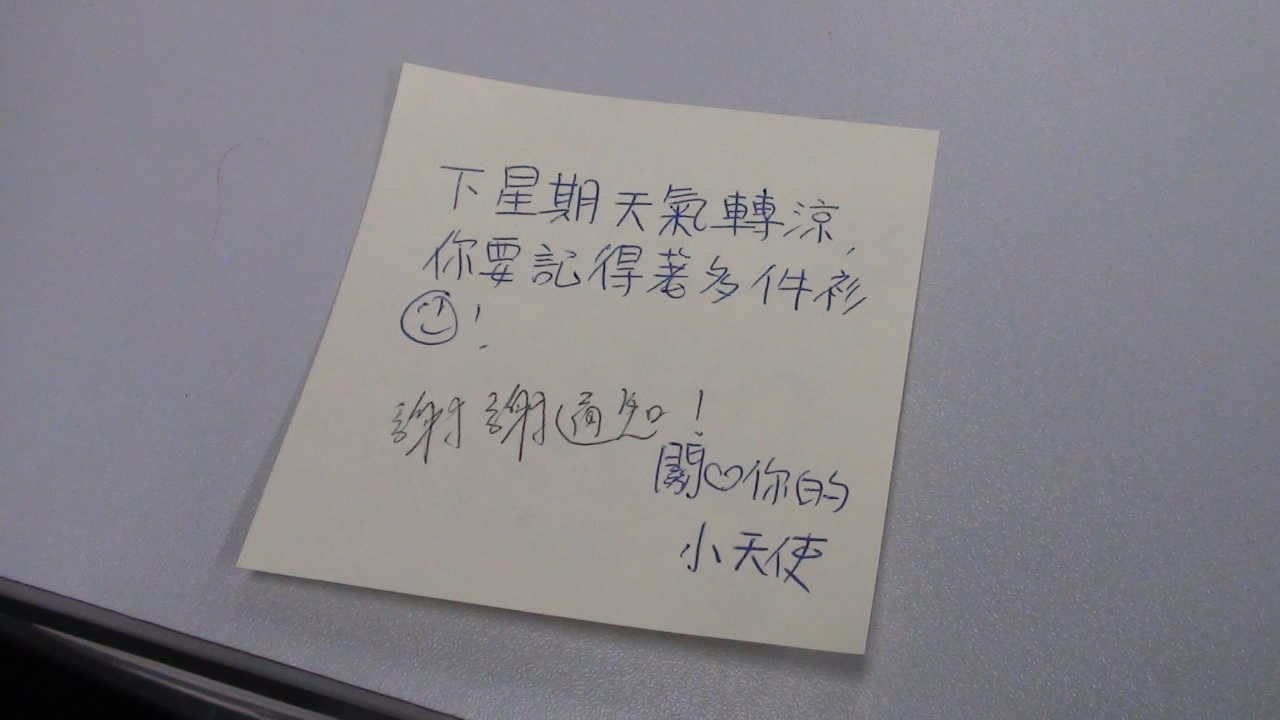 下星期天氣轉涼，
你要記得著多件衫
☺！
謝謝通知！
關♡你的
小天使